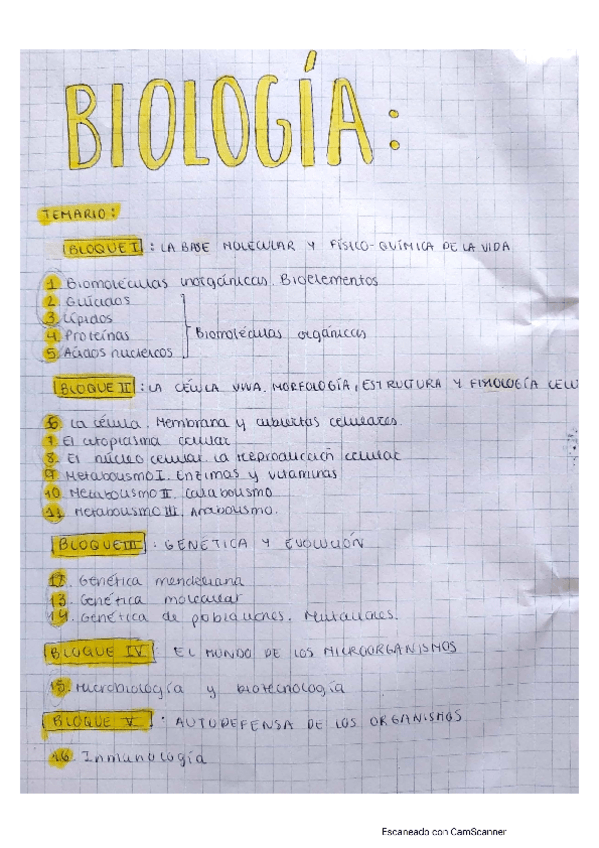 BIOLOGÍA:
TEMARIO:
BLOQUE I : LA BASE MOLECULAR Y FÍSICO-QUÍMICA DE LA VIDA
1. Biomoléculas inorgánicas. Bioelementos
2. Glúcidos
3. Lípidos
4. Proteínas
Biomoléculas orgánicas
5. Ácidos nucleicos
BLOQUE II : LA CÉLULA VIVA. MORFOLOGÍA, ESTRUCTURA Y FISIOLOGÍA CELU
6. La célula. Membrana y cubiertas celulares.
7. El citoplasma celular
8. El núcleo celular. La reproducción celular
9. Metabolismo I. Enzimas y vitaminas
10. Metabolismo II. Catabolismo
11. Metabolismo III. Anabolismo.
BLOQUE III : GENÉTICA Y EVOLUCIÓN
12. Genética mendeliana
13. Genética molecular
14. Genética de poblaciones. Mutaciones.
BLOQUE IV : EL MUNDO DE LOS MICROORGANISMOS
15. Microbiología y biotecnología
BLOQUE V : AUTODEFENSA DE LOS ORGANISMOS
16. Inmunología
Escaneado con CamScanner